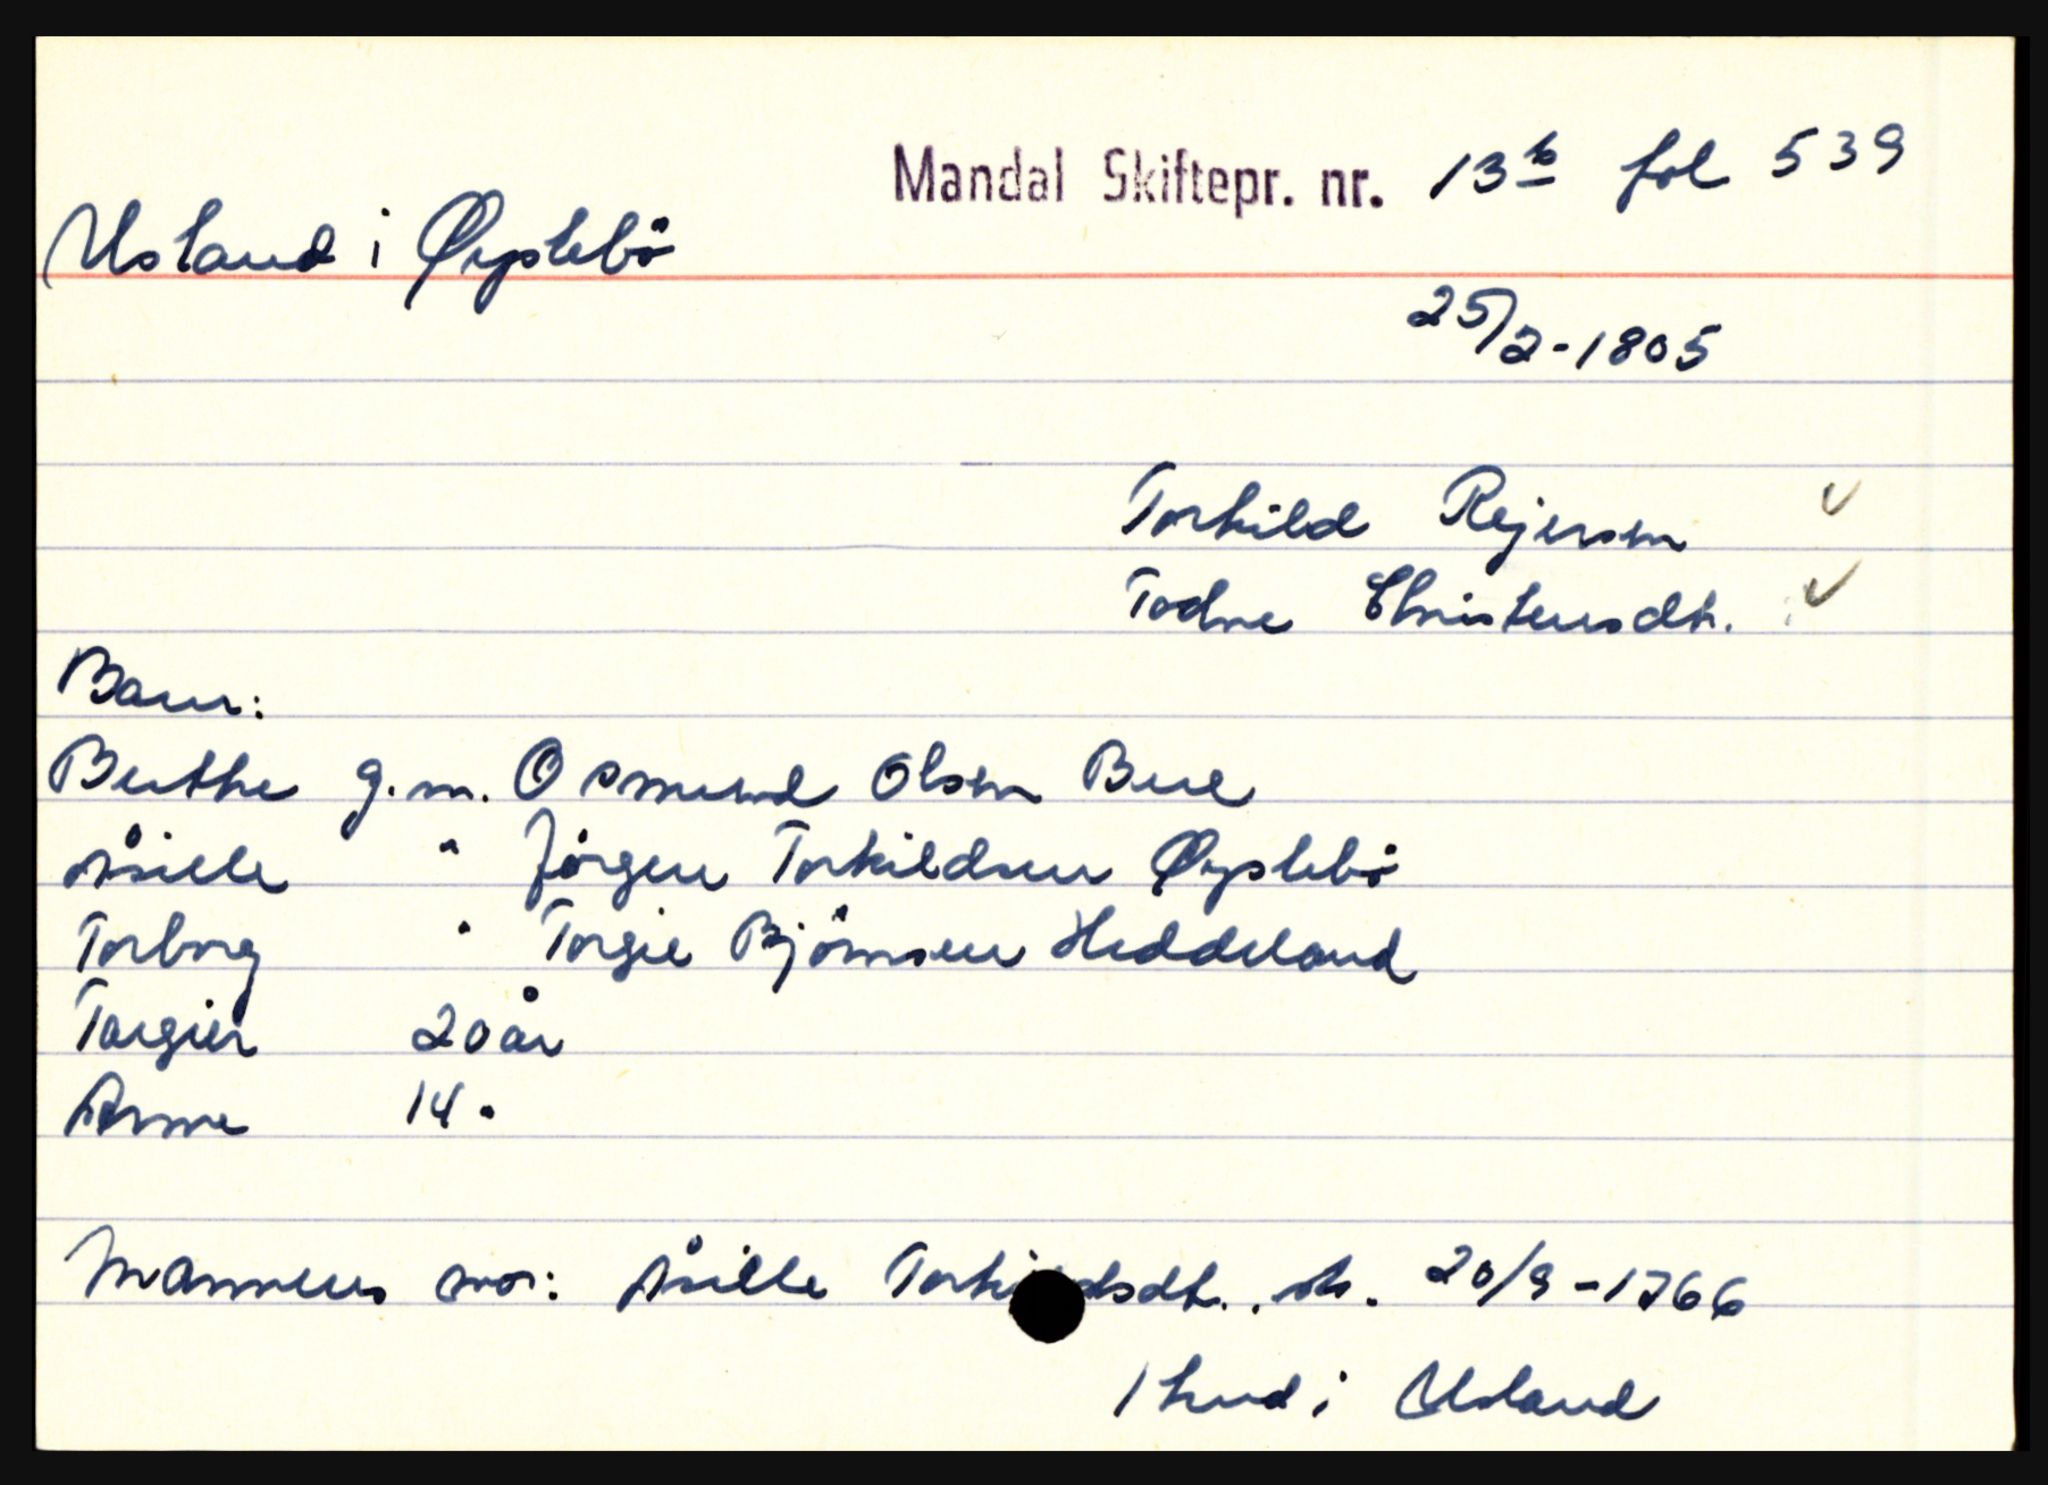 Mandal Skiftepr. nr. 13b fol 539
Usland i Øyslebö
25/2-1805
Torkild Rejersen
Todne Christensdtr.
Barn:
Berthe g.m. Osmund Olsen Bue
Åsille " Jörgen Torkildsen Øyslebö
Torborg " Torgie Björnsen Heddeland
Torgier 20 år
Anne 14 "
Mannens mor: Åsille Torkildsdtr. sk. 20/9-1766
1 hud i Usland